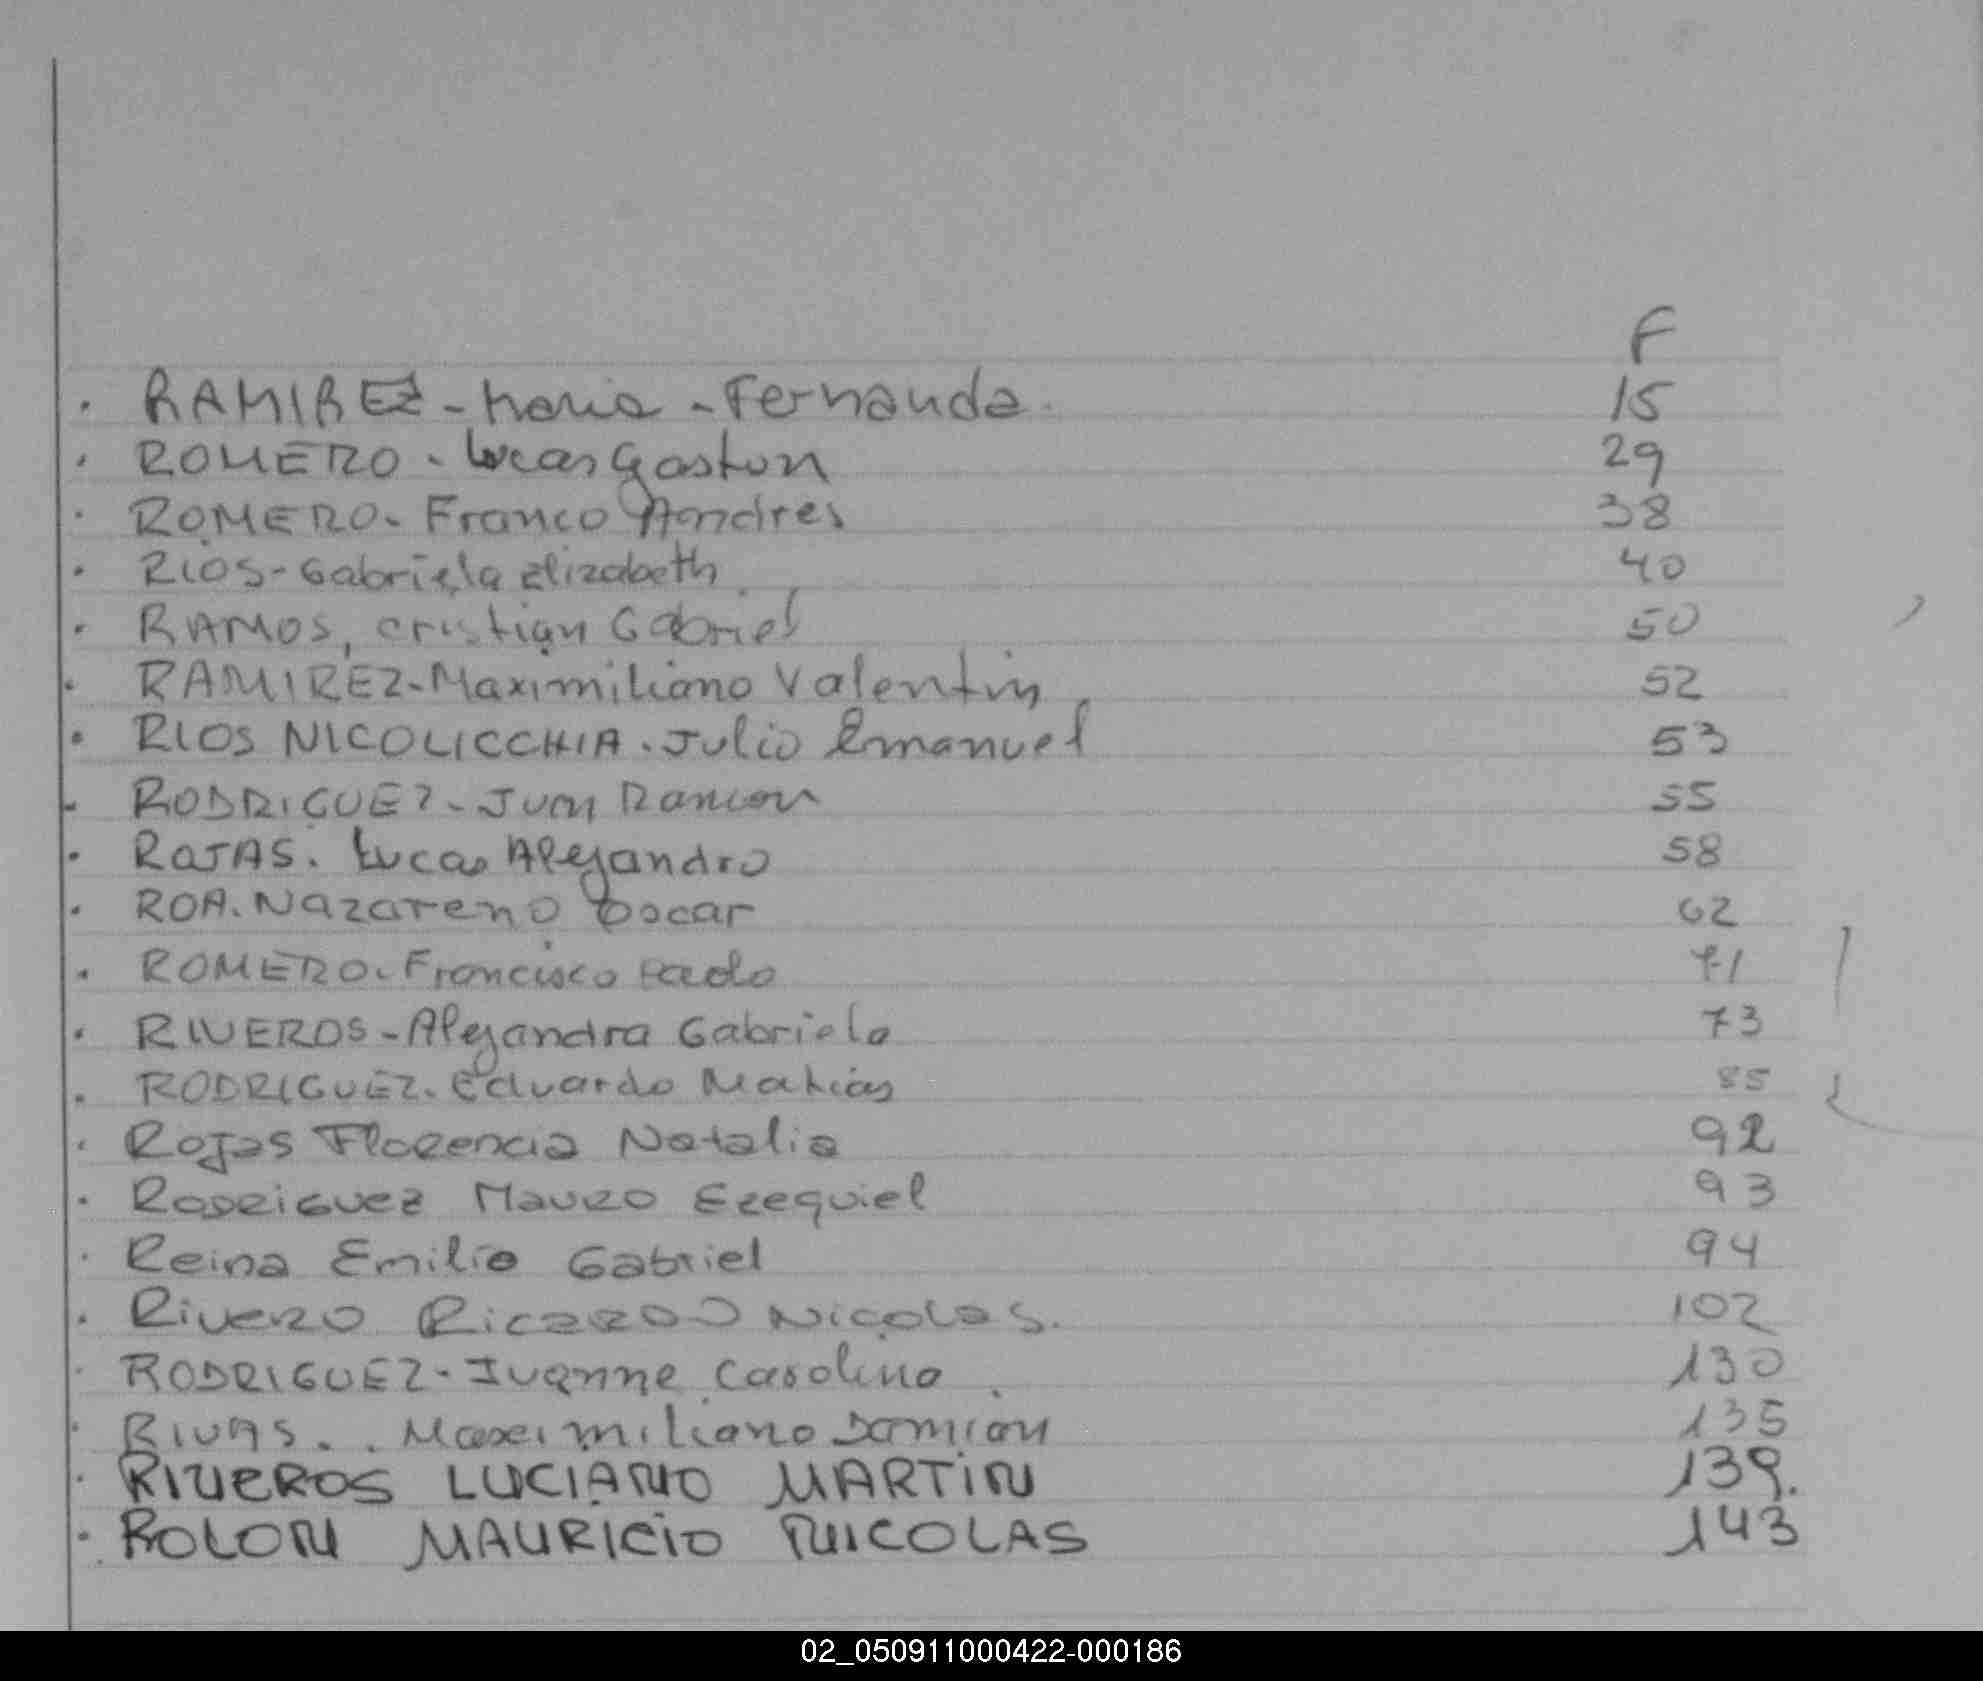 F
· RAMIREZ - Maria - Fernanda. 15
· ROMERO - Lucas Gaston 29
· ROMERO - Franco Andres 38
· RIOS - Gabriela Elizabeth 40
· RAMOS, cristian Gabriel 50
· RAMIREZ - Maximiliano Valentin 52
· RIOS NICOLICCHIA. Julio Emanuel 53
- RODRIGUEZ - Juan Ramon 55
· ROJAS. Lucas Alejandro 58
· ROA. Nazareno Oscar 62
· ROMERO. Francisco 71
· RIVEROS - Alejandra Gabriela 73
· RODRIGUEZ. Eduardo Matias 85
· Rojas Florencia Natalia 92
· Rodriguez Mauro Ezequiel 93
· Reina Emilio Gabriel 94
· Rivero Ricardo Nicolas. 102
· RODRIGUEZ - Ivanne Carolina. 130
· RIVAS. . Maximiliano Damian 135
· RIVEROS LUCIANO MARTIN 139.
· ROLON MAURICIO NICOLAS 143
02_050911000422-000186